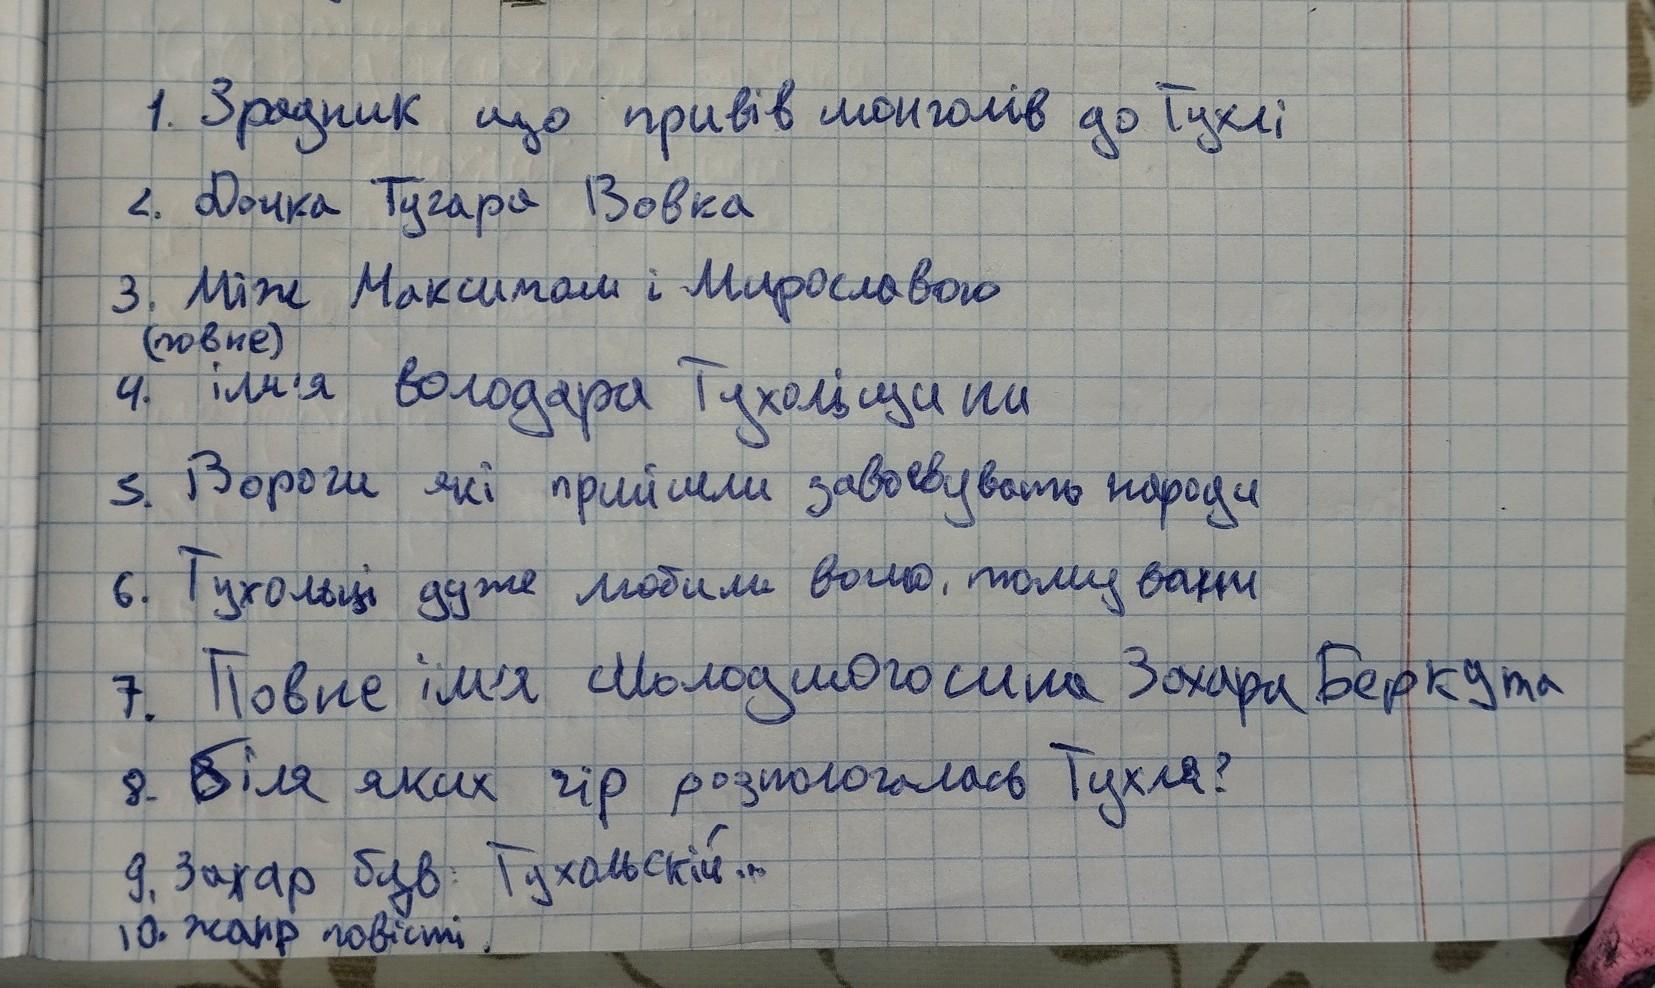 1. Зрадник що привів монголів до Тухлі
2. Дочка Тугара Вовка
3. Між Максимом і Мирославою
(повне)
4. ілм'я володара Тухоліщини
5. Вороги які прийшли завоєвувать народи
6. Тухольці дуже любили волю, тому вани
7. Повне ім'я Молодшого сина Захара Беркута
8. Біля яких гір розпологалась Тухля?
9. Захар був: Тухольскій...
10. жанр повісті.